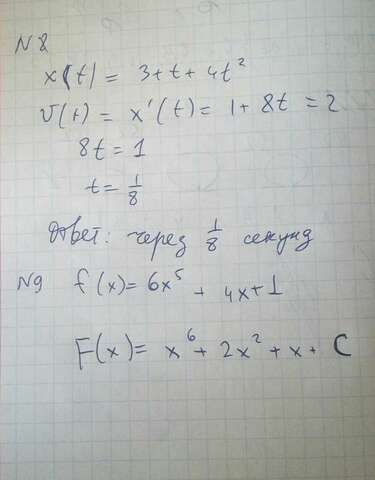 N 8
x(t) = 3+t+4t²
v(t) = x'(t) = 1+8t = 2
8t = 1
t = 1/8
Ответ: через 1/8 секунд
N9 f(x) = 6x⁵ + 4x+1
F(x) = x⁶ + 2x² + x + C